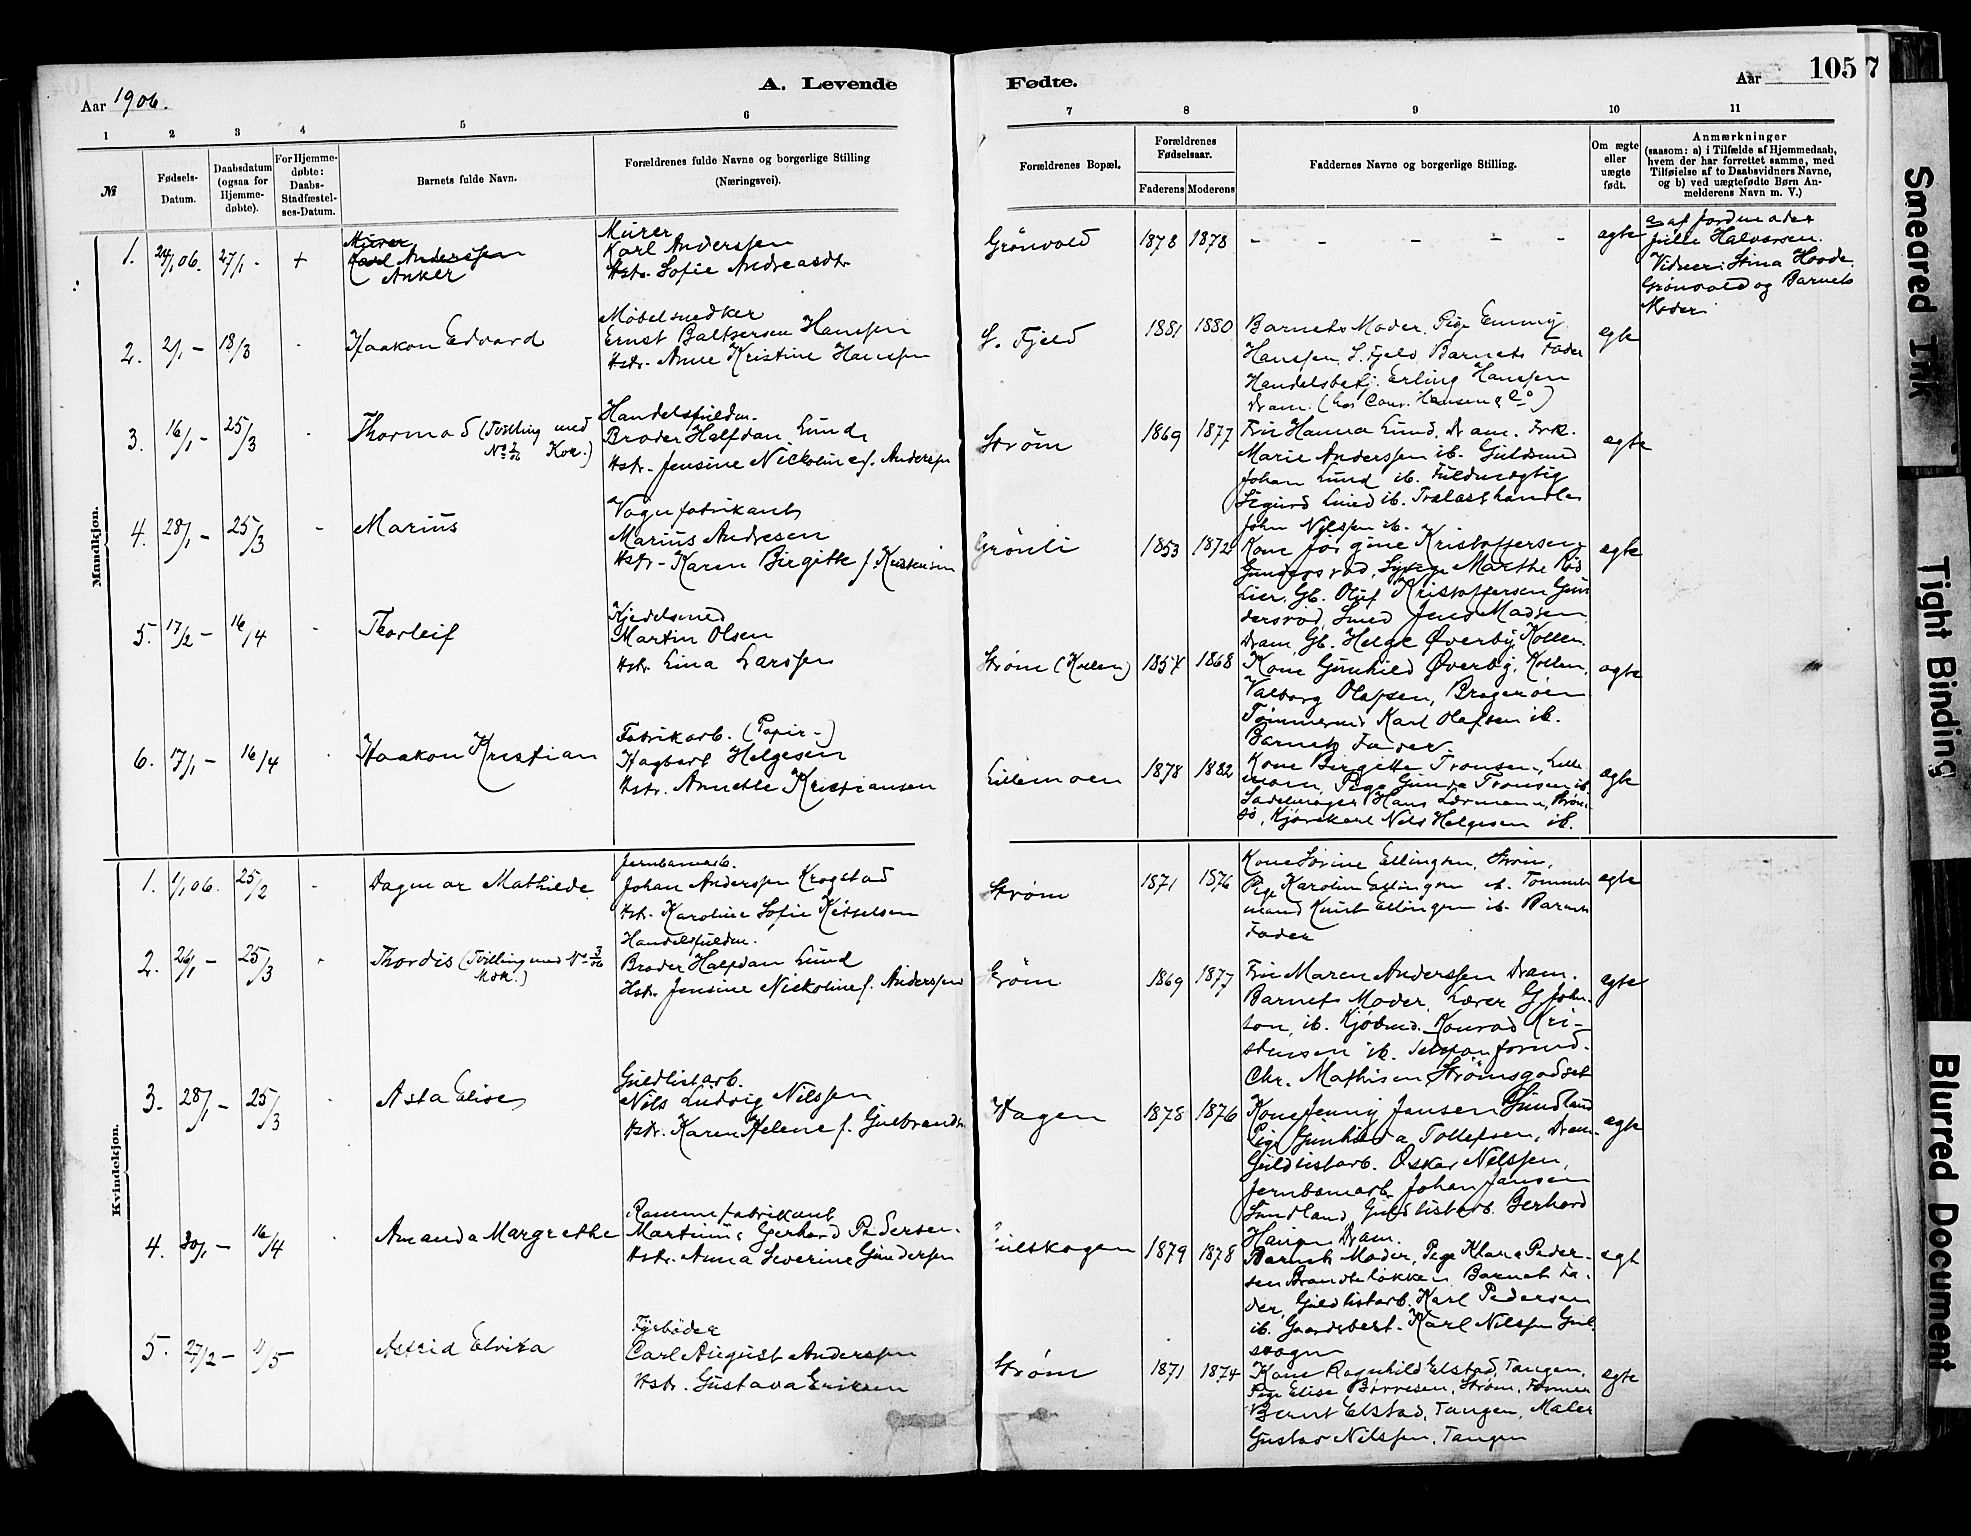 A. Levende
Fødte.
Aar
105
7
Aar 1906.
1 2 3 4 5 6
7 8 9 10 11
№
Fødsels-
Datum.
Daabsdatum
(ogsaa for
Hjemme-
døbte).
For Hjemme-
døbte:
Daabs-
Stadfæstel-
ses-Datum.
Barnets fulde Navn.
Forældrenes fulde Navne og borgerlige Stilling
(Næringsvei).
Forældrenes Bopæl.
Forældrenes
Fødselsaar.
Faderens
Moderens
Faddernes Navne og borgerlige Stilling.
Om ægte
eller
uægte
født.
Anmærkninger
(saasom: a) i Tilfælde af Hjemmedaab,
hvem der har forrettet samme, med
Tilføielse af to Daabsvidners Navne,
og b) ved uægtefødte Børn An-
melderens Navn m. V.)
Mandkjøn.
1. 24/1 06. 27/1 - +
Murer
Karl Anderssen
Anker
Murer
Karl Anderssen
Hstr. Sofie Andreasdtr.
Grönvold
1878 1878
- - - - -
ægte
a af Jordmoder
Julie Halvorsen.
Vidner: Stina Hovde
Grönvold og Barnets
Moder.
2. 2/1 - 18/3
Haakon Edvard
Møbelsnedker
Ernst Baltzersen Hanssen
Hstr. Anne Kristine Hanssen
S. Fjeld
1881 1880
Barnets Moder. Pige Emmy
Hanssen, S. Fjeld Barnets Fader
Handelsbetj. Erling Hanssen
Dram. (hos Conr. Hansen & Co)
egte
3. 16/1 - 25/3
Thormod (Tvilling med
No 2/06 Kvk.)
Handelsfuldm.
Broder Halfdan Lund
Hstr. Jensine Nickoline f. Anderssen
Ström
1869 1877
Fru Hanna Lund, Dram. Frk.
Marie Anderssen ib. Guldsmed
Johan Lund ib. Fuldmægtig
Sigurd Lund ib. Trælasthandler
John Nilssen ib.
ægte
4. 28/1 - 25/3
Marius
Vognfabrikant
Marius Andresen
Hstr. Karen Birgitte f. Kristensen
Grönli
1853 1872
Kone Jörgine Kristoffersen
Gundersrød, Sypige Marthe Rød
Lier, Gb. Oluf Kristoffersen Gun
dersrød, Smed Jens Madsen
Dram, Gb. Helge Øverby, Kollen.
ægte
5. 17/2 - 16/4
Thorleif
Kjedelsmed
Martin Olsen
Hstr. Lina Larssen
Strøm (Kollen)
1854 1868
Kone Gunhild Øverby, Kollen,
Valborg Olafsen, Bragerøen
Tömmermd Karl Olafsen ib.
Barnets Fader.
ægte
6. 17/1 - 16/4
Haakon Kristian
Fabrikarb. (Papir-)
Hagbart Helgesen
Hstr. Annette Kristiansen
Lillemoen
1878 1882
Kone Birgitte Tronsen, Lille
moen, Pige Gunda Tronsen ib.
Sadelmager Hans Lærmann, Strøms
sö, Kjörekarl Nils Helgesen ib.
ægte
Kvindekjøn.
1. 1/1 06. 25/2
Dagmar Mathilde
Jernbanearb.
Johan Anderssen Krogstad
Hstr. Karoline Sofie Ketselsen
Strøm
1871 1876
Kone Sörine Ellingsen, Ström,
Pige Karoline Ellingsen ib. Tömmer
mand Knut Ellingsen ib. Barnets
Fader
ægte
2. 26/1 - 25/3
Thordis (Tvilling med No 3/06
Mdk.)
Handelsfuldm.
Broder Halfdan Lund
Hstr. Jensine Nickoline f. Anderssen
Ström
1869 1877
Fru Maren Anderssen Dram.
Barnets Moder, Lærer G. John-
son, ib. Kjöbmd. Konrad Kri-
stensen ib. Telefonformd.
Chr. Mathisen Strømsgodset
egte
3. 28/1 - 25/3
Asta Elise
Guldlistarb.
Nils Ludvig Nilssen
Hstr. Karen Helene f. Gulbrands.
Hagen
1878 1876
Kone Jenny Jansen Sundland
Pige Gunhilda Tollefsen, Dram.
Guldlistarb. Oskar Nilssen,
Jernbanearb. Johan Jansen
Sundland, Guldlistarb. Berhard
Haugen Dram.
ægte
4. 30/1 - 16/4
Amanda Margrethe
Rammefabrikant
Martinius Gerhard Pedersen
Hstr. Anna Severine Gundersen
Gulskogen
1879 1878
Barnets Moder, Pige Klara Peder-
sen Brandtelökken, Barnets Fa-
der, Guldlistarb. Karl Pedersen
ib. Gaardsbest. Karl Nilssen Gul
skogen
ægt
5. 27/2 - 11/5
Astrid Elvira
Fyrböder
Carl August Anderssen
Hstr. Gustava Eriksen
Ström
1871 1874
Kone Ragnhild Elstad, Tangen,
Pige Elise Børresen, Ström, Former
Bernt Elstad, Tangen, Maler
Gustav Nilssen, Tangen
ægte
Smeared Ink
Tight Binding
Blurred Document